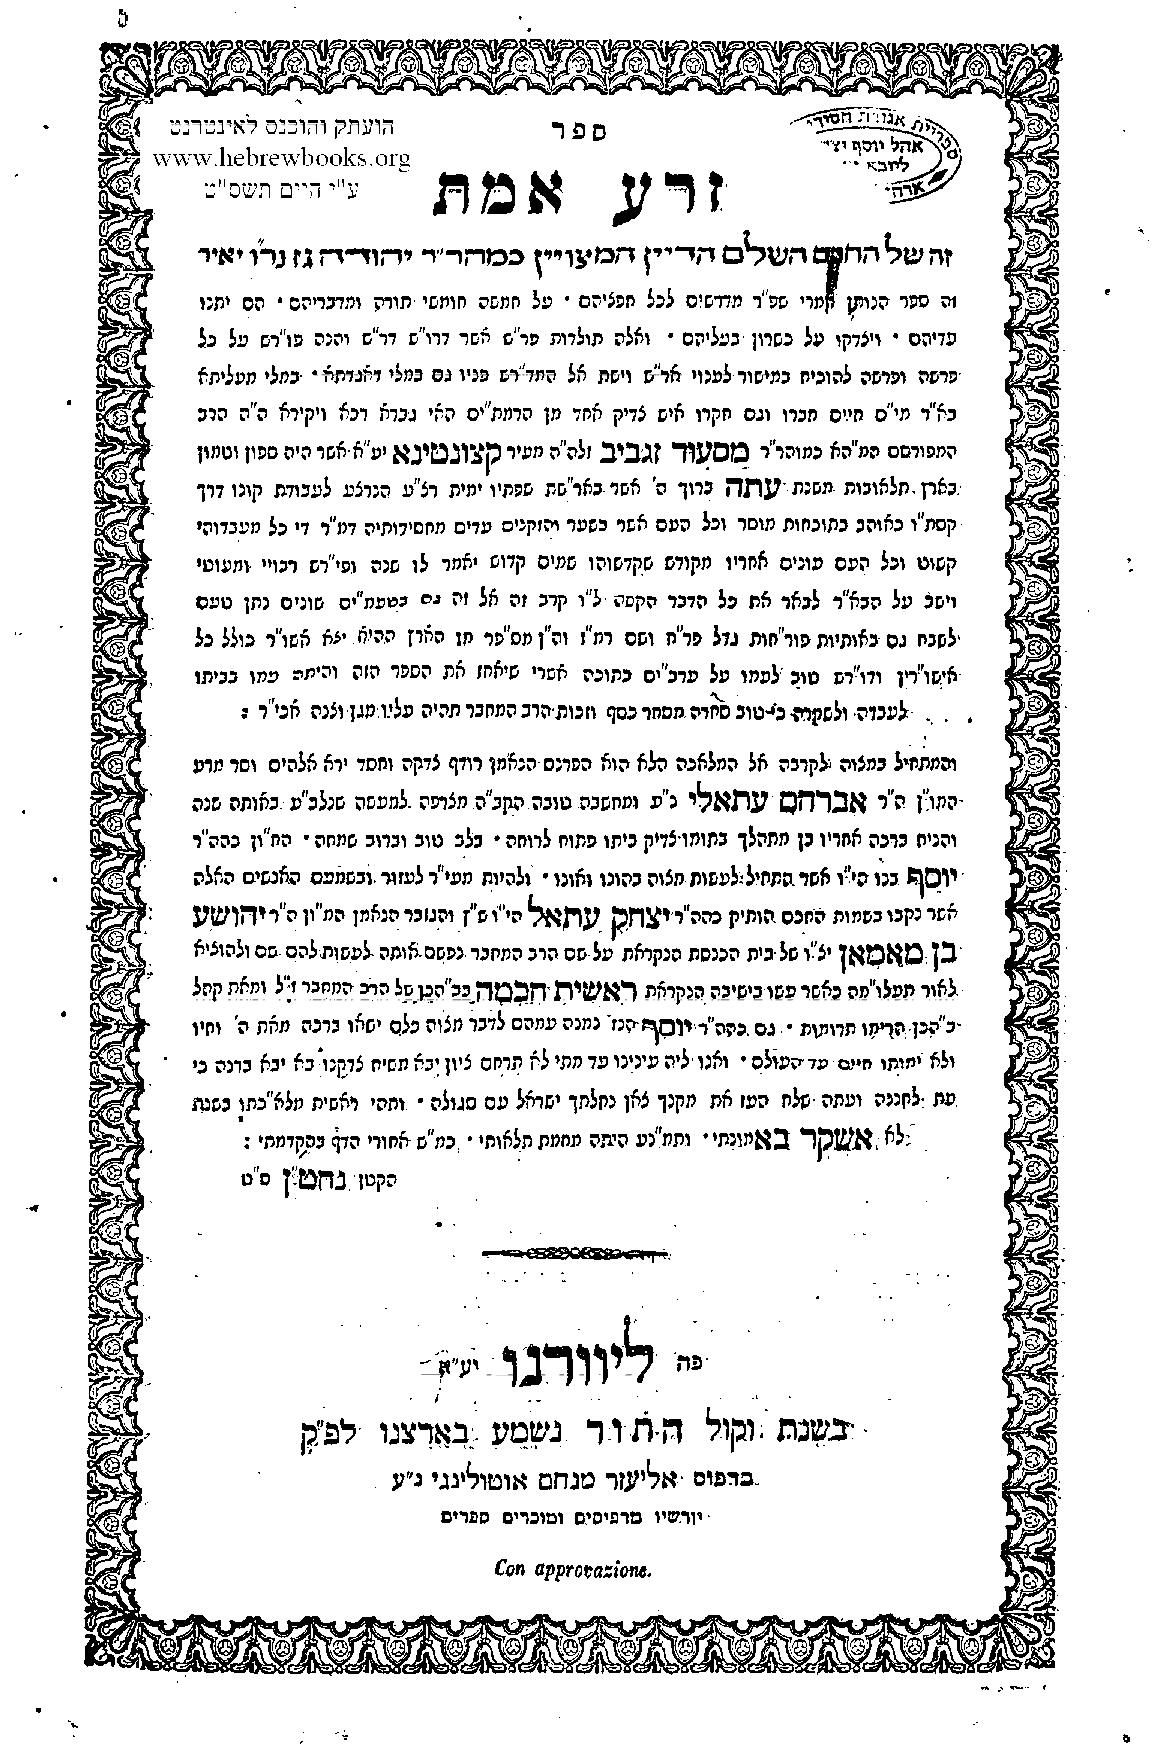 הועתק והוכנס לאינטרנט
www.hebrewbooks.org
ע"י היים תשס"ט
ספרית אגודת חסידי
אהל יוסף
ספר
זרע אמת
זה של החכם השלם הדיין המצויין כמהר"ר יהודה גז נר"ו יאיר
זה ספר הנותן אמרי שפ"ר מדרשים לכל חפציהם · על חמשה חומשי תורה ומדבריהם · הם יתנו
עדיהם · ויצדקו על כשרון בעליהם · ואלה תולדות פר"ש אשר דרו"ש דר"ש והנה פו"רש על כל
פרשה ופרשה להוכיח במישור לענוי אר"ש וישת אל המד"רש פניו גם במלי דאגדתא · במלי מעליתא
בא"ד מי"ם חיים חברו וגם חקרו איש צדיק אחד מן הרמת"ים האי גברא רבא ויקירא ה"ה הרב
המפורסם המ"הא כמוהר"ר מסעוד זגביב זלה"ה מעיר קצונטינא יע"א אשר היה ספון וטמון
בארץ תלאובות משנת עתה ברוך ה' אשר באר"שת שפתיו ימית רצ"ע הנרצע לעבודת קונו דרך
קסת"ו כאוהב בתוכחות מוסר וכל העם אשר בשער והזקנים עדים מחסידותיה דמ"ר די כל מעבדוהי
קשוט וכל העם עונים אחריו מקודש שקדשוהו שמים קדוש יאמר לו שנה ופי"רש רבויי ומעוטי
וישב על הבא"ר לבאר את כל הדבר הקשה ל"ו קרב זה אל זה גם בטעמ"ים שונים נתן טעם
לשבח גם באותיות פור"חות גדל פר"ח ושם רמ"ז וה"ן מס"פר מן הארץ ההיא יצא אשו"ר כולל כל
אישו"רין ודו"רש טוב לעמו על ערב"ים בתוכה אשרי שיאחז את הספר הזה והיתה עמו בביתו
לעבדה ולשמרה כי טוב סחרה מסחר כסף וזכות הרב המחבר תהיה עליו מגן וצנה אכי"ר :
והמתחיל במצוה לקרבה אל המלאכה הלא הוא הפרנס הנאמן רודף צדקה וחסד ירא אלהים וסר מרע
המו"ן ה"ר אברהם עתאלי נ"ע ומחשבה טובה הקב"ה מצרפה למעשה שנלב"ע באותה שנה
והניח ברכה אחריו בן מתהלך בתומו צדיק ביתו פתוח לרוחה · בלב טוב וברוב שמחה · הח"ון בהה"ר
יוסף בנו הי"ו אשר התחיל לעשות מצוה בהונו ואונו · ולהיות מעי"ר לעזור ובשמעם האנשים האלה
אשר נקבו בשמות החכם הותיק כהה"ר יצחק עתאל הי"ו ש"ץ והגובר הנאמן המ"ון ה"ר יהושע
בן מאמאן יצ"ו של בית הכנסת הנקראת על שם הרב המחבר נפשם אותה לעשות להם שם ולהוציא
לאור תעלו"מה כאשר עשו בישיבה הנקראת ראשית חכמה בב"הכן של הרב המחבר ז"ל ומאת קהל
ב"הכן הרימו תרומות · גם כהה"ר יוסף הנז' נמנה עמהם לדבר מצוה כלם ישאו ברכה מאת ה' וחיו
ולא ימותו חיים עד העולם · ואנו ליה עינינו עד מתי לא תרחם ציון יבא משיח צדקנו בא יבא ברנה כי
עת לחננה ועתה שלח העז את מקנך צאן נחלתך ישראל עם סגולה · ותהי ראשית מלא"כתו בשנת
לא אשקר באמונתי · ותמ"נע היתה מחמת תלאותי · כמ"ש אחורי הדף בהקדמתי :
הקטן נחט"ן ס"ט
פה ליוורנו יע"א
בשנת וקול התור נשמע בארצנו לפ"ק
בדפוס אליעזר מנחם אוטולינגי נ"ע
יורשיו מדפיסים ומוכרים ספרים
Con approvazione.